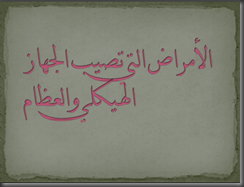 الأمراض التي تصيب الجهاز
الهيكلي والعظام